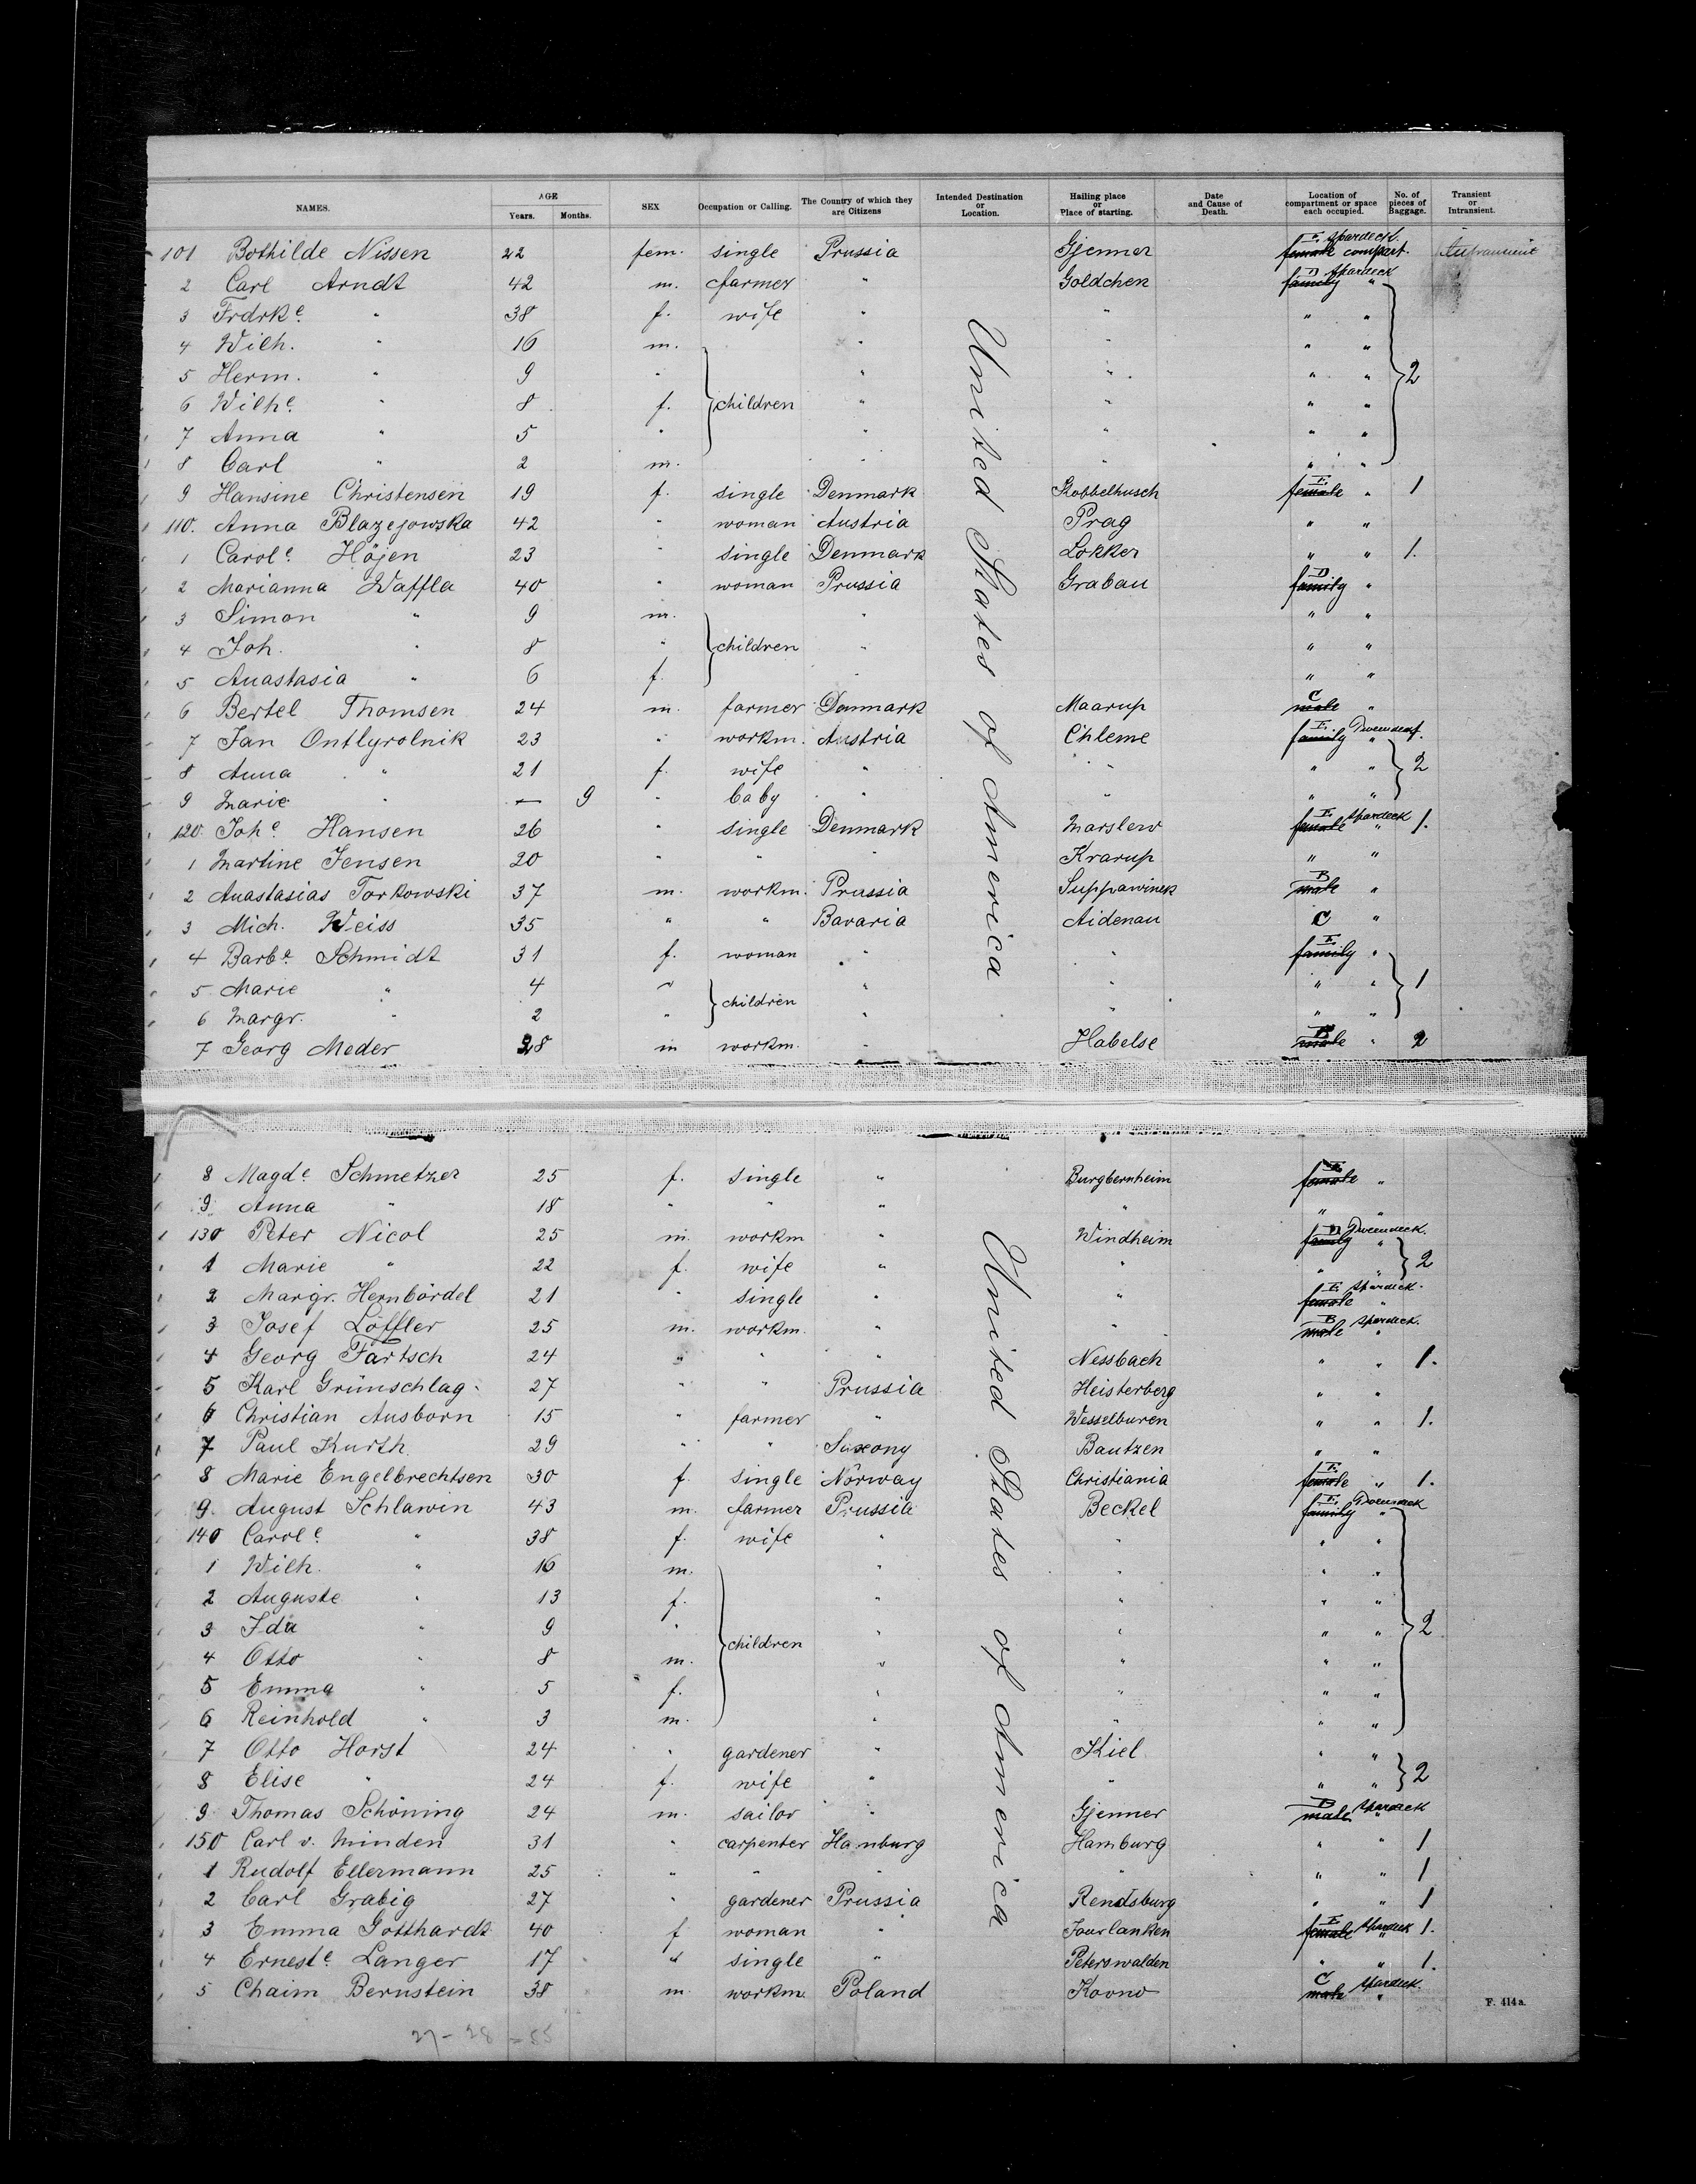 NAMES. AGE Years. Months. SEX Occupation or Calling. The Country of which they are Citizens Intended Destination or Location. Hailing place or Place of starting. Date and Cause of Death. Location of compartment or space each occupied. No. of pieces of Baggage. Transient or Intransient.
101 Bothilde Nissen 22 fem. single Prussia Gjenner E. spardeck. female compart.
2 Carl Arndt 42 m. farmer " Goldchen D spardeck family "
3 Frdrke. " 38 f. wife " " " "
4 Wilh. " 16 m. " " " "
5 Herm. " 9 " " " " " 2
6 Wilhe. " 8 f. children " " " "
7 Anna " 5 " " " " "
8 Carl " 2 m. " " " "
9 Hansine Christensen 19 f. single Denmark Kobbelhusch E. female " 1
110. Anna Blazejowska 42 " woman Austria Prag " "
1 Carole Höjen 23 " single Denmark Lokker " " 1.
2 Marianna Waffla 40 " woman Prussia Grabau D family "
3 Simon " 9 m. " " "
4 Joh. " 8 " children " " "
5 Anastasia " 6 f. " " "
6 Bertel Thomsen 24 m. farmer Denmark Maarup C male "
7 Jan Ontlyrolnik 23 " workm. Austria Chleme E. family "
8 Anna " 21 f. wife " " " " 2
9 Marie " — 9 " baby " " " "
120. Johe. Hansen 26 " single Denmark Marslew E. spardeck female " 1.
1 Martine Jensen 20 " " " Krarup " "
2 Anastasias Torkowski 37 m. workm. Prussia Suppawinek B male "
3 Mich. Weiss 35 " " Bavaria Aidenau C "
4 Barbe Schmidt 31 f. woman " " E. family "
5 Marie " 4 " children " " " " 1
6 Margr. " 2 " " " " "
7 Georg Meder 28 m workm. " Habelse B male " 2
8 Magde Schmetzer 25 f. single " Burgbernheim E female "
9 Anna " 18 " " " " " "
130 Peter Nicol 25 m. workm " Windheim D family "
1 Marie " 22 f. wife " " " " 2
2 Margr. Hernbördel 21 " single " " E. spardeck. female "
3 Josef Löffler 25 m. workm. " " B spardeck. male "
4 Georg Färtsch 24 " " " Nessbach " " 1.
5 Karl Grünschlag. 27 " " Prussia Heisterberg " "
6 Christian Ausborn 15 " farmer " Wesselburen " " 1.
7 Paul Kurth 29 " " Saxony Bautzen " "
8 Marie Engelbrechtsen 30 f. single Norway Christiania E. female " 1.
9. August Schlawin 43 m. farmer Prussia Beckel E. family "
140 Carole " 38 f. wife " " " "
1 Wilh. " 16 m. " " " "
2 Auguste " 13 f. " " " "
3 Ida " 9 " " " " " 2
4 Otto " 8 m. children " " " "
5 Emma " 5 f. " " " "
6 Reinhold " 3 m. " " " "
7 Otto Horst 24 " gardener " Kiel " "
8 Elise " 24 f. wife " " " " 2
9 Thomas Schöning 24 m. sailor " Gjenner B spardeck male "
150 Carl v. Minden 31 " carpenter Hamburg Hamburg " " 1
1 Rudolf Ellermann 25 " " " " " " 1
2 Carl Grabig 27 " gardener Prussia Rendsburg " " 1
3 Emma Gotthardt 40 f woman " Jourlanken E female spardeck " 1.
4 Erneste Langer 17 " single " Peterswalden " " 1.
5 Chaim Bernstein 38 m. workm. Poland Kovno C spardeck. male "
United States of America
United States of America
27 - 28 = 55
F. 414 a.